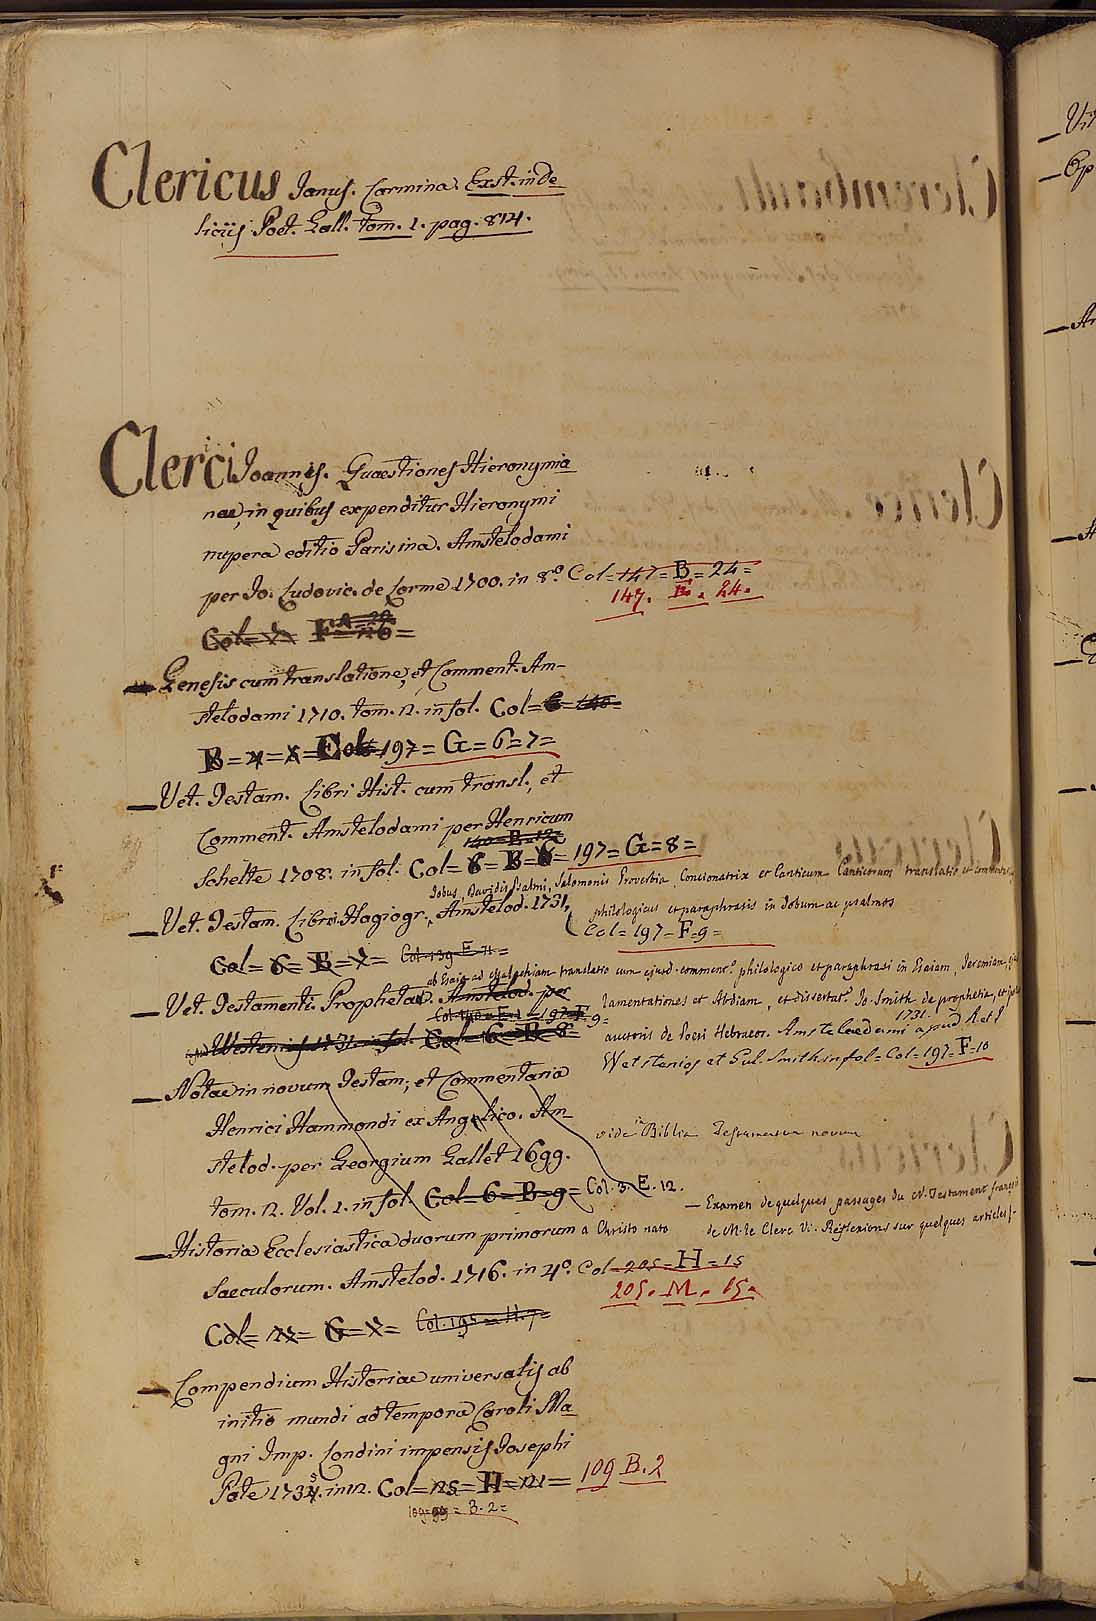 Clericus Janus. Carmina. Exst. in de
liciis Poet. Gall. tom. 1. pag. 814.
Clerici Joannis. Quaestiones Hieronymia
nae, in quibus expenditur Hieronymi
nupera editio Parisina. Amstelodami
per Jo. Ludovic. de Lorme 1700. in 8.º Col=147=B=24=
147. B. 24.
Col= F=
Genesis cum translatione, et Comment. Am-
stelodami 1710. tom. 2. in fol. Col=6=140=
B=4=5=E Col 197=G=6=7=
Vet. Testam. Libri Hist. cum transl., et
Comment. Amstelodami per Henricum
140=B=12
Schelte 1708. in fol. Col=6=B=6=197=G=8=
Jobus, Davidis Psalmi, Salomonis Proverbia, Concionatrix et Canticum Canticorum translatio et
Vet. Testam. Libri Hagiogr., Amstelod. 1731,
philologicus et paraphrasis in Jobum ac psalmos
Col=197=F=9=
Col=6=B=7= Col=139=E=11=
ab Esaia ad Malachiam translatio cum ejusd. comment.º philologico et paraphrasi in Esaiam, Jeremiam,
Vet. Testamenti Prophetae. Amstelod. per
lamentationes et Abdiam, et dissertat.s Jo. Smith de prophetia, et
Col=140=E.1=197=F 9=
Westenios 1731. in fol. Col=6=B=8
auctoris de Poesi Hebraeor. Amstelaedami apud R. et J
1731.
Wetstenios et Gul. Smith in fol=Col=197=F=10
Notae in novum Testam; et Commentaria
Henrici Hammondi ex Anglico. Am-
vide in Biblia Testamentum novum
stelod. per Georgium Gallet 1699.
tom. 2. Vol. 1. in fol Col=6=B=9= Col. 3. E. 12.
Examen de quelques passages du N. Testament françois
de M. le Clerc V. Reflexions sur quelques articles
Historia Ecclesiastica duorum primorum a Christo nato
saeculorum. Amstelod. 1716. in 4º. Col=205=H=15
205. M. 15.
Col=123=G=7= Col. 195=H.7=
Compendium Historiae universalis ab
initio mundi ad tempora Caroli Ma
gni Imp. Londini impensis Josephi
Pote 1735. in 12. Col=25=H=21= 109 B. 2
109=99=B.2=